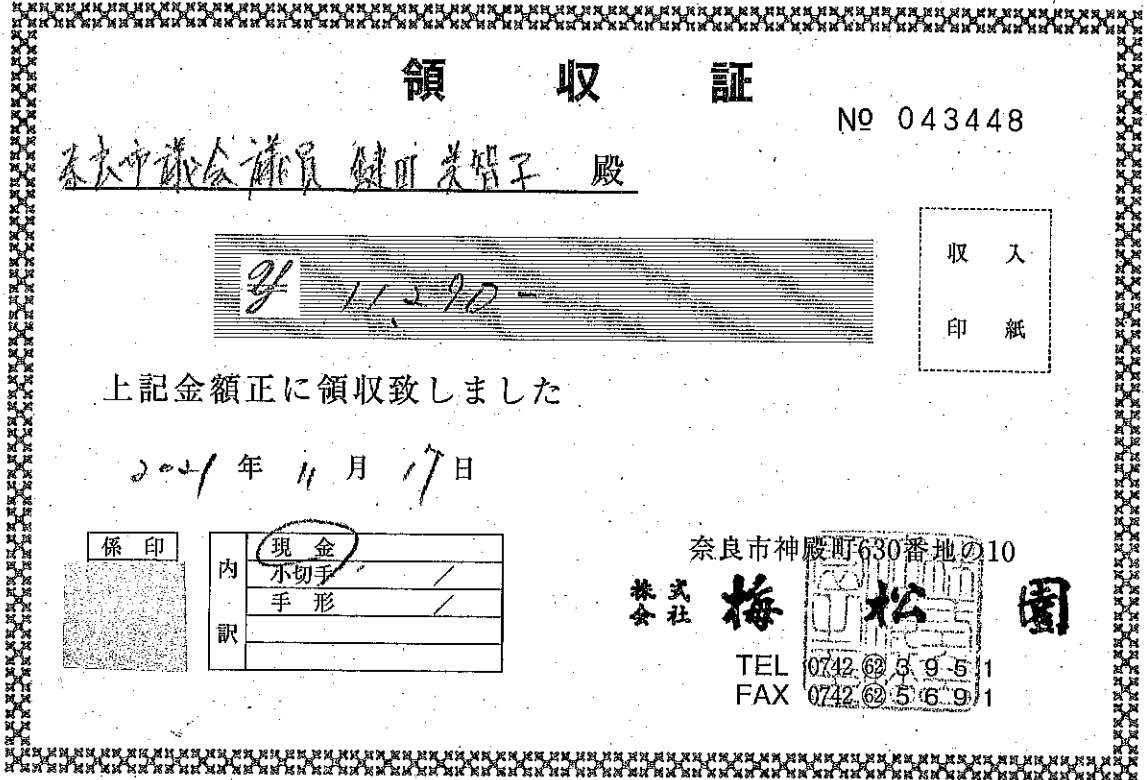 領収証
№ 043448
奈良市議会議員 鍵田美智子 殿
収入
印紙
¥ 11,290-
上記金額正に領収致しました
2021年11月17日
係印
内訳
現金
小切手 /
手形 /
奈良市神殿町630番地の10
株式会社 梅松園
TEL 0742 62 3951
FAX 0742 62 5691